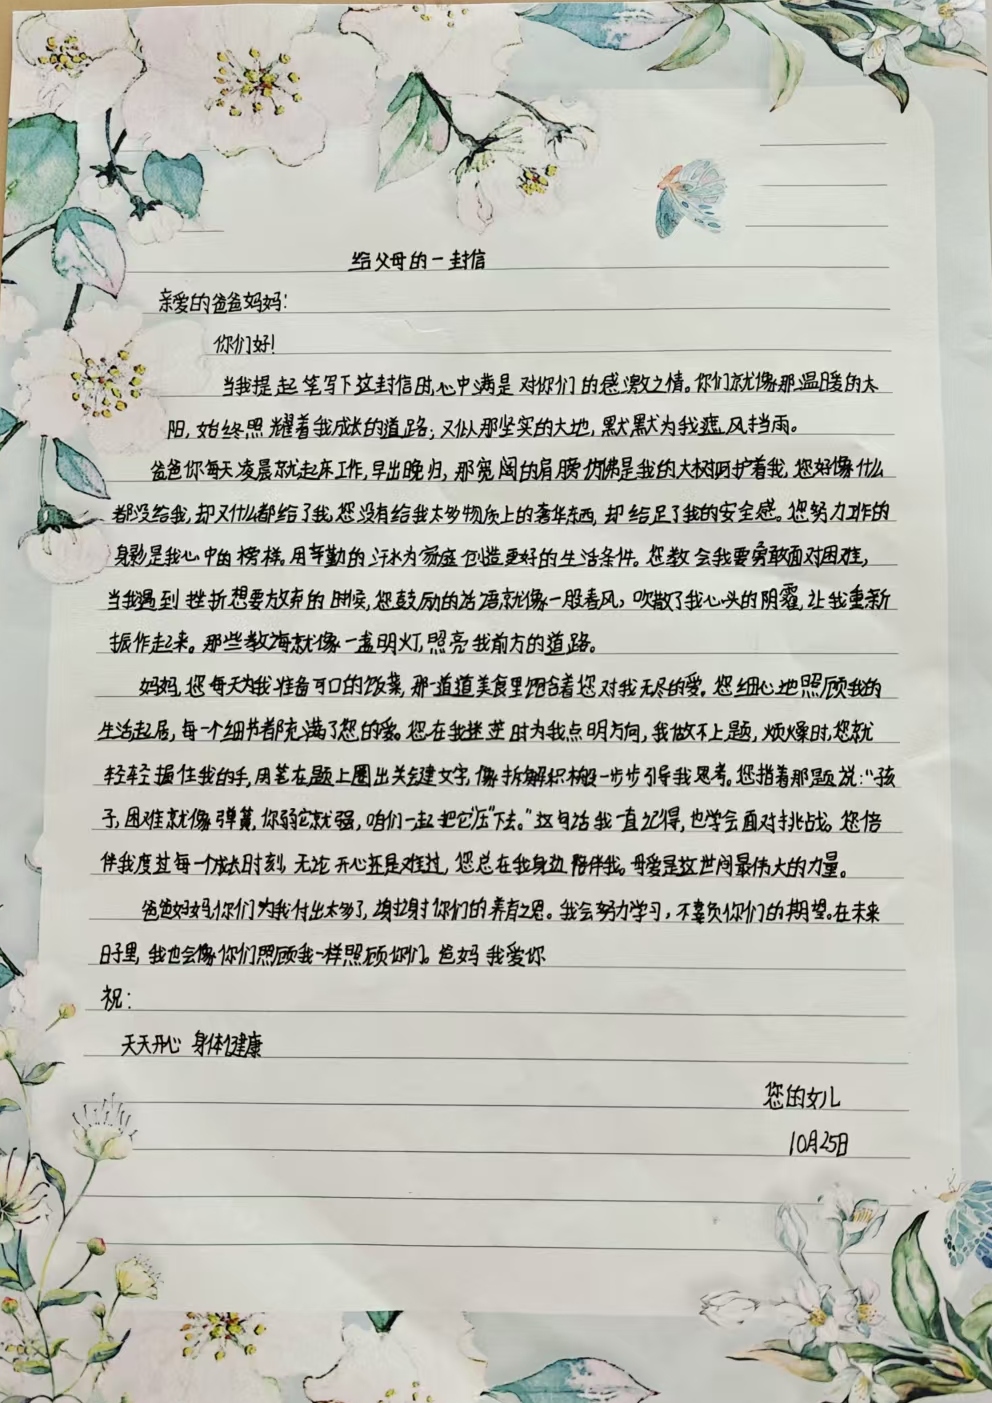 给父母的一封信
亲爱的爸爸妈妈：
你们好！
当我提起笔写下这封信时，心中满是对你们的感激之情。你们就像那温暖的太
阳，始终照耀着我成长的道路；又似那坚实的大地，默默为我遮风挡雨。
爸爸你每天凌晨就起床工作，早出晚归，那宽阔的肩膀仿佛是我的大树呵护着我，您好像什么
都没给我，却又什么都给了我，您没有给我太多物质上的奢华东西，却给足了我的安全感。您努力工作的
身影是我心中的榜样。用辛勤的汗水为家庭创造更好的生活条件。您教会我要勇敢面对困难，
当我遇到挫折想要放弃的时候，您鼓励的话语就像一股春风，吹散了我心头的阴霾，让我重新
振作起来。那些教诲就像一盏明灯，照亮我前方的道路。
妈妈，您每天为我准备可口的饭菜，那一道道美食里饱含着您对我无尽的爱。您细心地照顾我的
生活起居，每一个细节都充满了您的爱。您在我迷茫时为我点明方向，我做不上题，烦燥时，您就
轻轻握住我的手，用笔在题上圈出关键文字，像拆解积木般一步步引导我思考。您指着那题说：“孩
子，困难就像弹簧，你弱它就强，咱们一起把它“压”下去。”这句话我一直记得，也学会面对挑战。您倍
伴我度过每一个成长时刻，无论开心还是难过，您总在我身边陪伴我。母爱是这世间最伟大的力量。
爸爸妈妈，你们为我付出太多了，谢谢你们的养育之恩。我会努力学习，不辜负你们的期望。在未来
日子里，我也会像你们照顾我一样照顾你们。爸妈 我爱你
祝：
天天开心 身体健康
您的女儿
10月25日